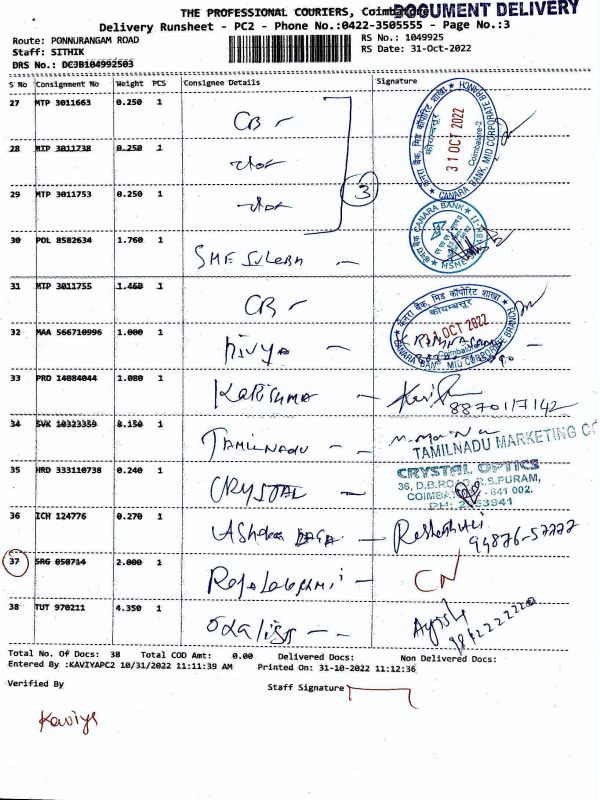 THE PROFESSIONAL COURIERS, Coimbatore
DOCUMENT DELIVERY
Delivery Runsheet - PC2 - Phone No.:0422-3505555 - Page No.:3
Route: PONNURANGAM ROAD RS No.: 1049925
Staff: SITHIK RS Date: 31-Oct-2022
DRS No.: DC3B104992503
S No Consignment No Weight PCS Consignee Details Signature
27 MTP 3011663 0.250 1 CB
28 MTP 3011738 0.250 1
29 MTP 3011753 0.250 1
3
31 OCT 2022
Coimbatore-2
CANARA BANK, MID CORPORATE BRANCH
CANARA BANK
30 POL 8582634 1.760 1
31 MTP 3011755 1.460 1 CB
31 OCT 2022
Coimbatore
CANARA BANK, MID CORPORATE BRANCH
32 MAA 566710996 1.000 1 Divya
33 PRO 14084044 1.080 1 Karishma
8870117142
34 SVK 10323359 8.150 1 TAMILNADU
TAMILNADU MARKETING CO
35 HRD 333110738 0.240 1 CRYSTAL
CRYSTAL OPTICS
36, D.B.ROAD, R.S.PURAM,
COIMBATORE - 641 002.
36 ICH 124776 0.270 1
94876-57777
37 SRG 850714 2.000 1 Rajalakshmi CN
38 TUT 970211 4.350 1
Total No. Of Docs: 38 Total COD Amt: 0.00 Delivered Docs: Non Delivered Docs:
Entered By :KAVIYAPC2 10/31/2022 11:11:39 AM Printed On: 31-10-2022 11:12:36
Verified By Staff Signature
Kaviya